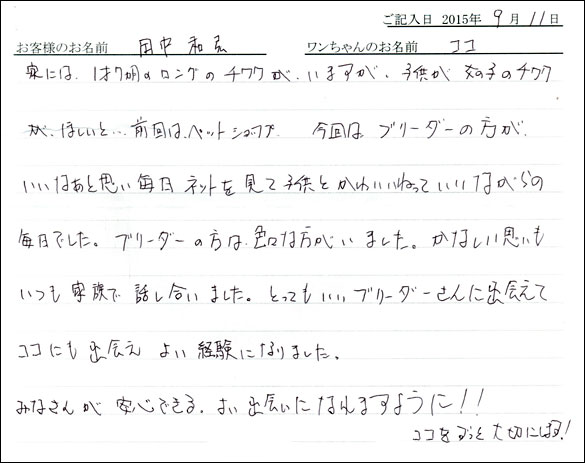 ご記入日 2015年 9月 11日
お客様のお名前 田中 和弘 ワンちゃんのお名前 ココ
家には、1才7ヶ月のロングのチワワが、いますが、子供が女の子のチワワ
が、ほしいと…前回は、ペットショップ. 今回は ブリーダーの方が、
いいなあと思い毎日 ネットを見て子供とかわいいねっていいながらの
毎日でした。ブリーダーの方は、色々な方がいました。かなしい思いも
いつも家族で話し合いました。とってもいいブリーダーさんに出会えて
ココにも出会え よい経験になりました。
みなさんが安心できる、よい出会いになりますように!!
ココをずっと大切にはる!